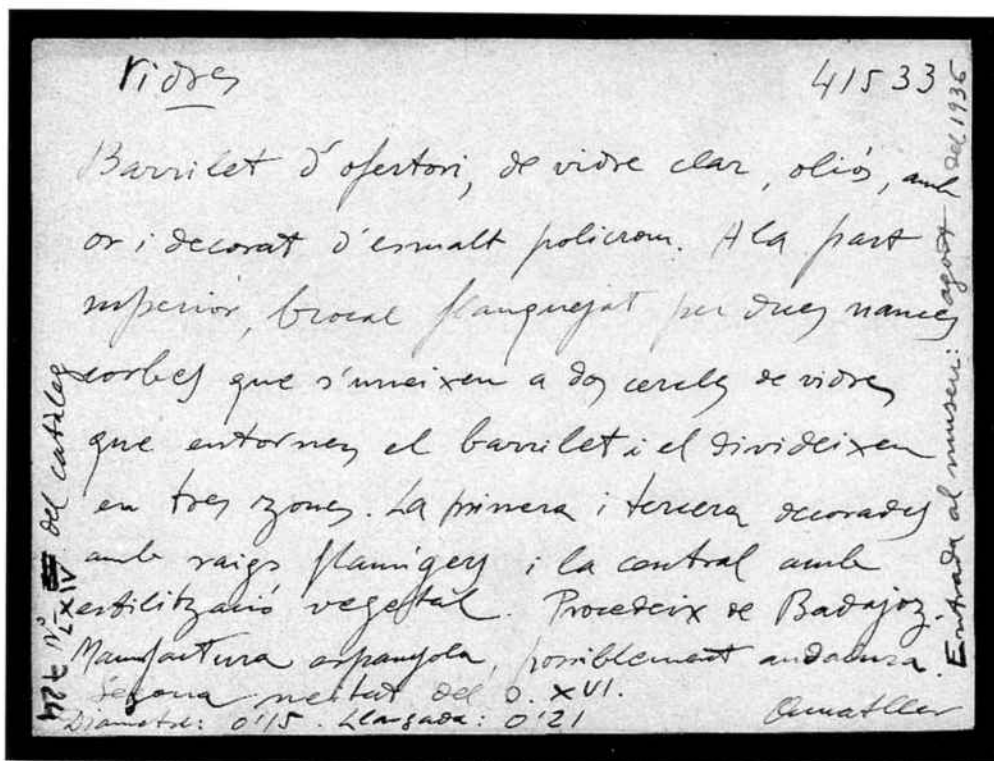 Vidres
41533
Barrilet d'ofertori, de vidre clar, oliós, amb
or i decorat d'esmalt policrom. A la part
superior, brocal flanquejat per dues nances
corbes que s'uneixen a dos cercles de vidre
que entornen el barrilet i el divideixen
en tres zones. La primera i tercera decorades
amb raigs flamígers i la central amb
estilització vegetal. Procedeix de Badajoz.
Manufactura espanyola, possiblement andalusa.
Segona meitat del s. XVI.
Diametre: 0'15. Llargada: 0'21
Amatller
724 Nº LXIV del catàleg
Entrada al museu: agost del 1936